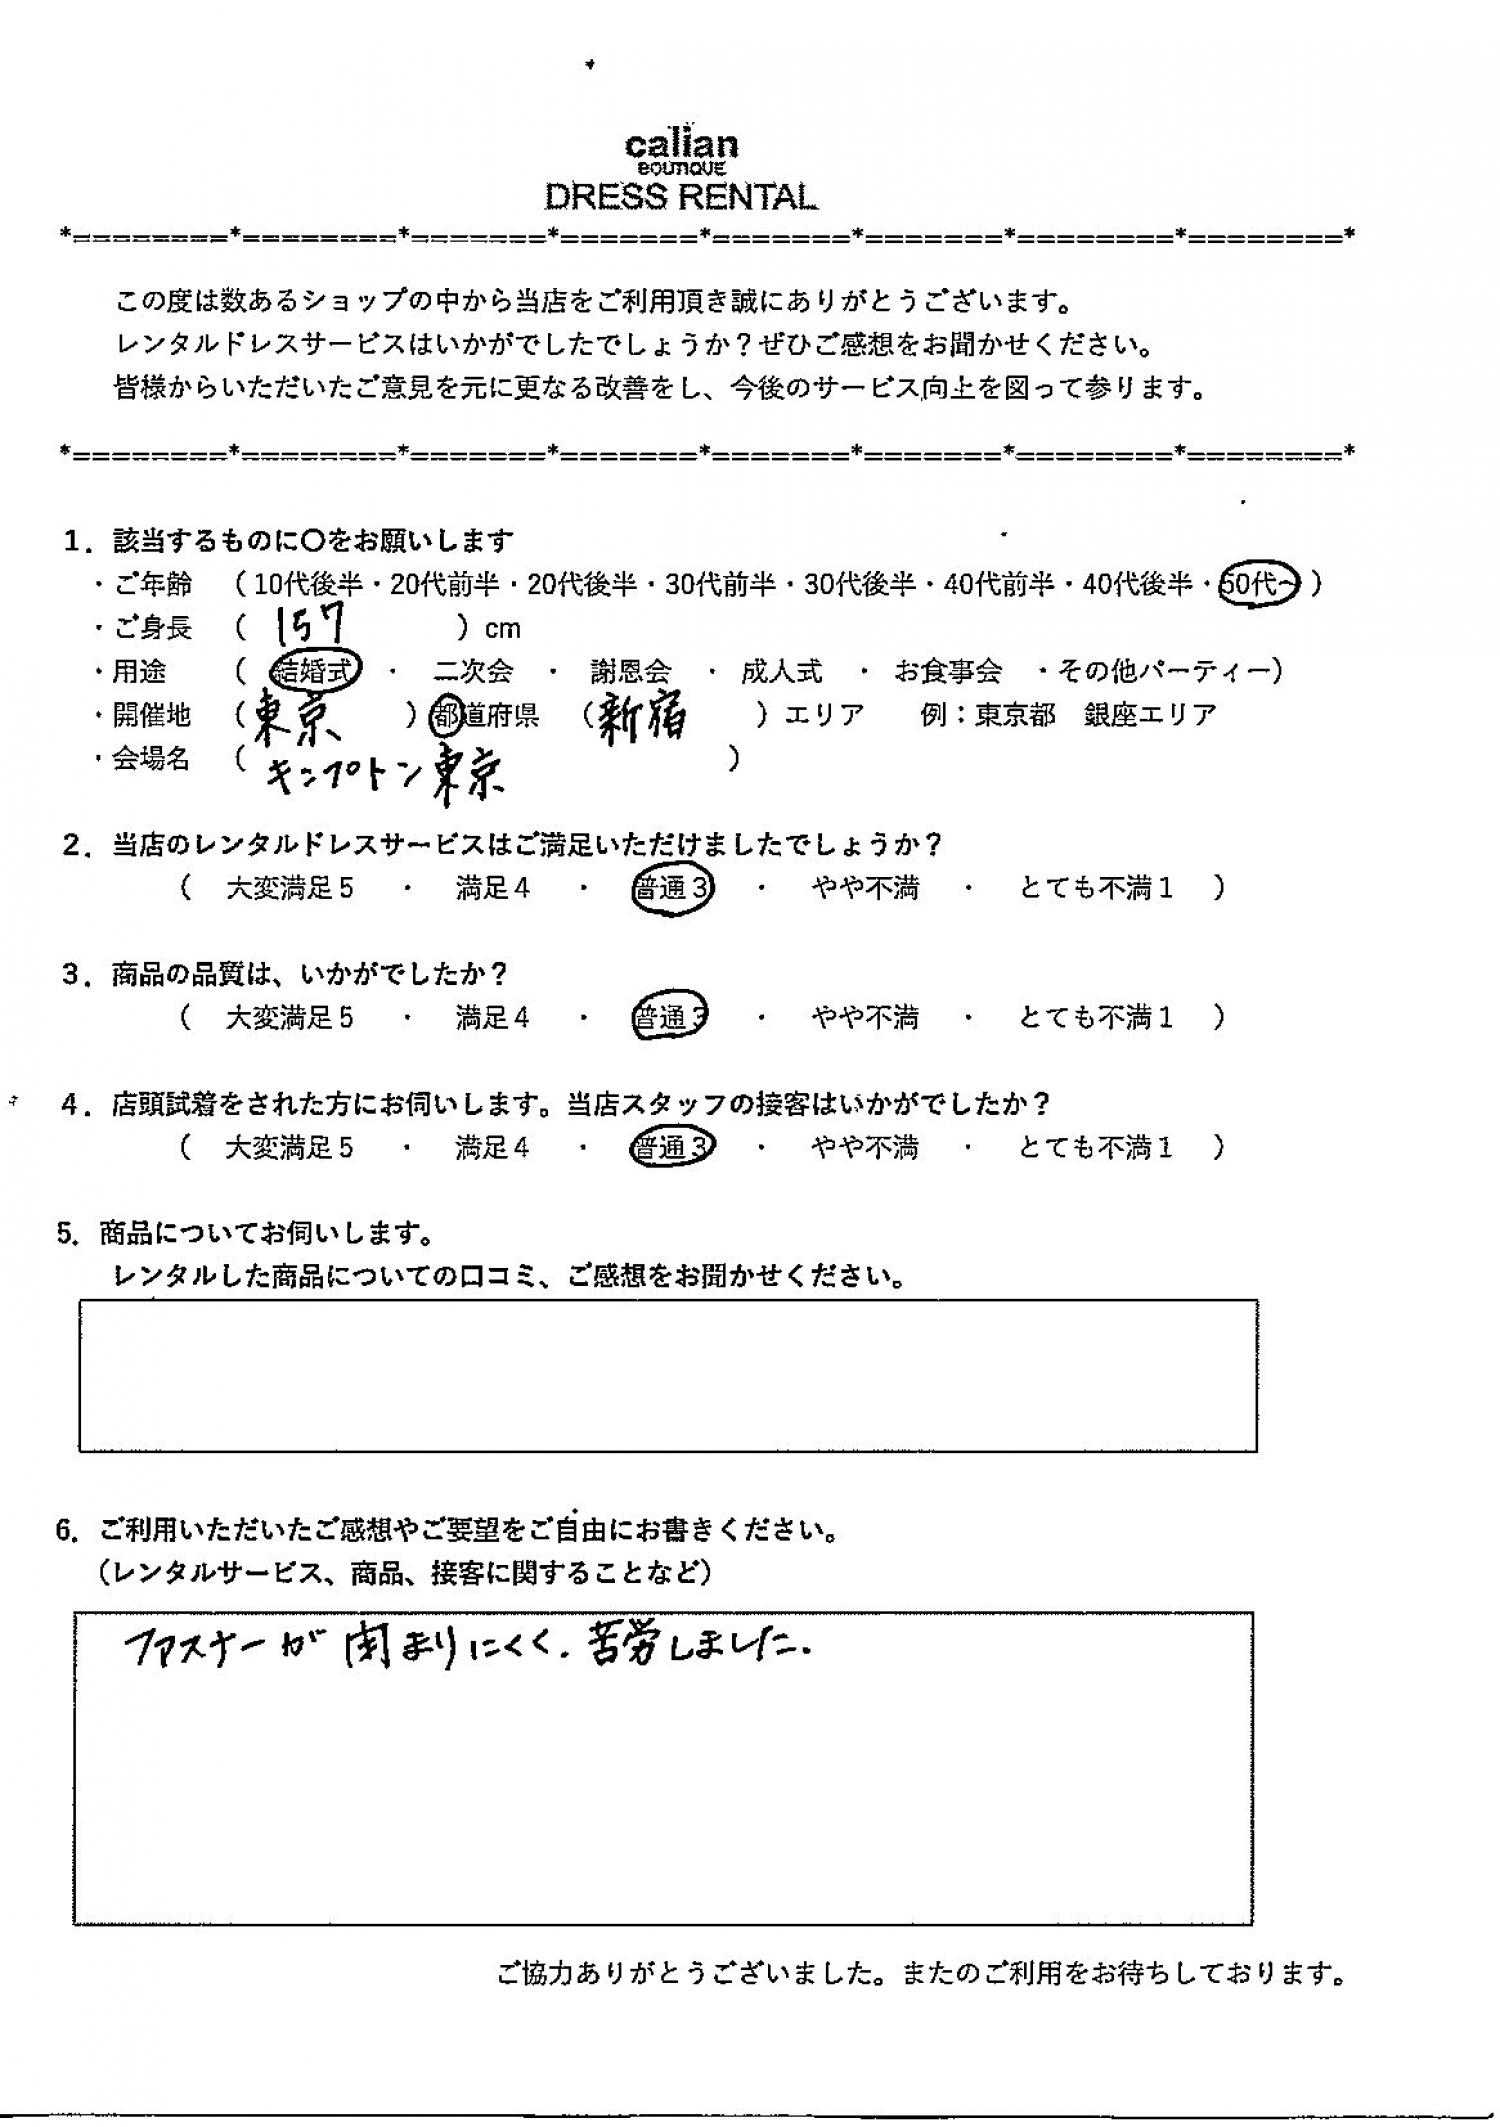 calian
BOUTIQUE
DRESS RENTAL
*========*========*=======*=======*=======*=======*========*========*
この度は数あるショップの中から当店をご利用頂き誠にありがとうございます。
レンタルドレスサービスはいかがでしたでしょうか？ぜひご感想をお聞かせください。
皆様からいただいたご意見を元に更なる改善をし、今後のサービス向上を図って参ります。
*========*========*=======*=======*=======*=======*========*========*
1．該当するものに〇をお願いします
・ご年齢 （10代後半・20代前半・20代後半・30代前半・30代後半・40代前半・40代後半・50代～）
・ご身長 （ 157 ）cm
・用途 （ 結婚式 ・ 二次会 ・ 謝恩会 ・ 成人式 ・ お食事会 ・その他パーティー）
・開催地 （東京 ）都道府県 （新宿 ）エリア 例：東京都 銀座エリア
・会場名 （ キンプトン東京 ）
2．当店のレンタルドレスサービスはご満足いただけましたでしょうか？
（ 大変満足5 ・ 満足4 ・ 普通3 ・ やや不満 ・ とても不満1 ）
3．商品の品質は、いかがでしたか？
（ 大変満足5 ・ 満足4 ・ 普通3 ・ やや不満 ・ とても不満1 ）
4．店頭試着をされた方にお伺いします。当店スタッフの接客はいかがでしたか？
（ 大変満足5 ・ 満足4 ・ 普通3 ・ やや不満 ・ とても不満1 ）
5．商品についてお伺いします。
レンタルした商品についての口コミ、ご感想をお聞かせください。
6．ご利用いただいたご感想やご要望をご自由にお書きください。
（レンタルサービス、商品、接客に関することなど）
ファスナーが閉まりにくく、苦労しました。
ご協力ありがとうございました。またのご利用をお待ちしております。